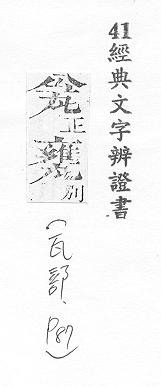 41經典文字辨證書
瓮正
雍瓦別
(瓦部、P87)